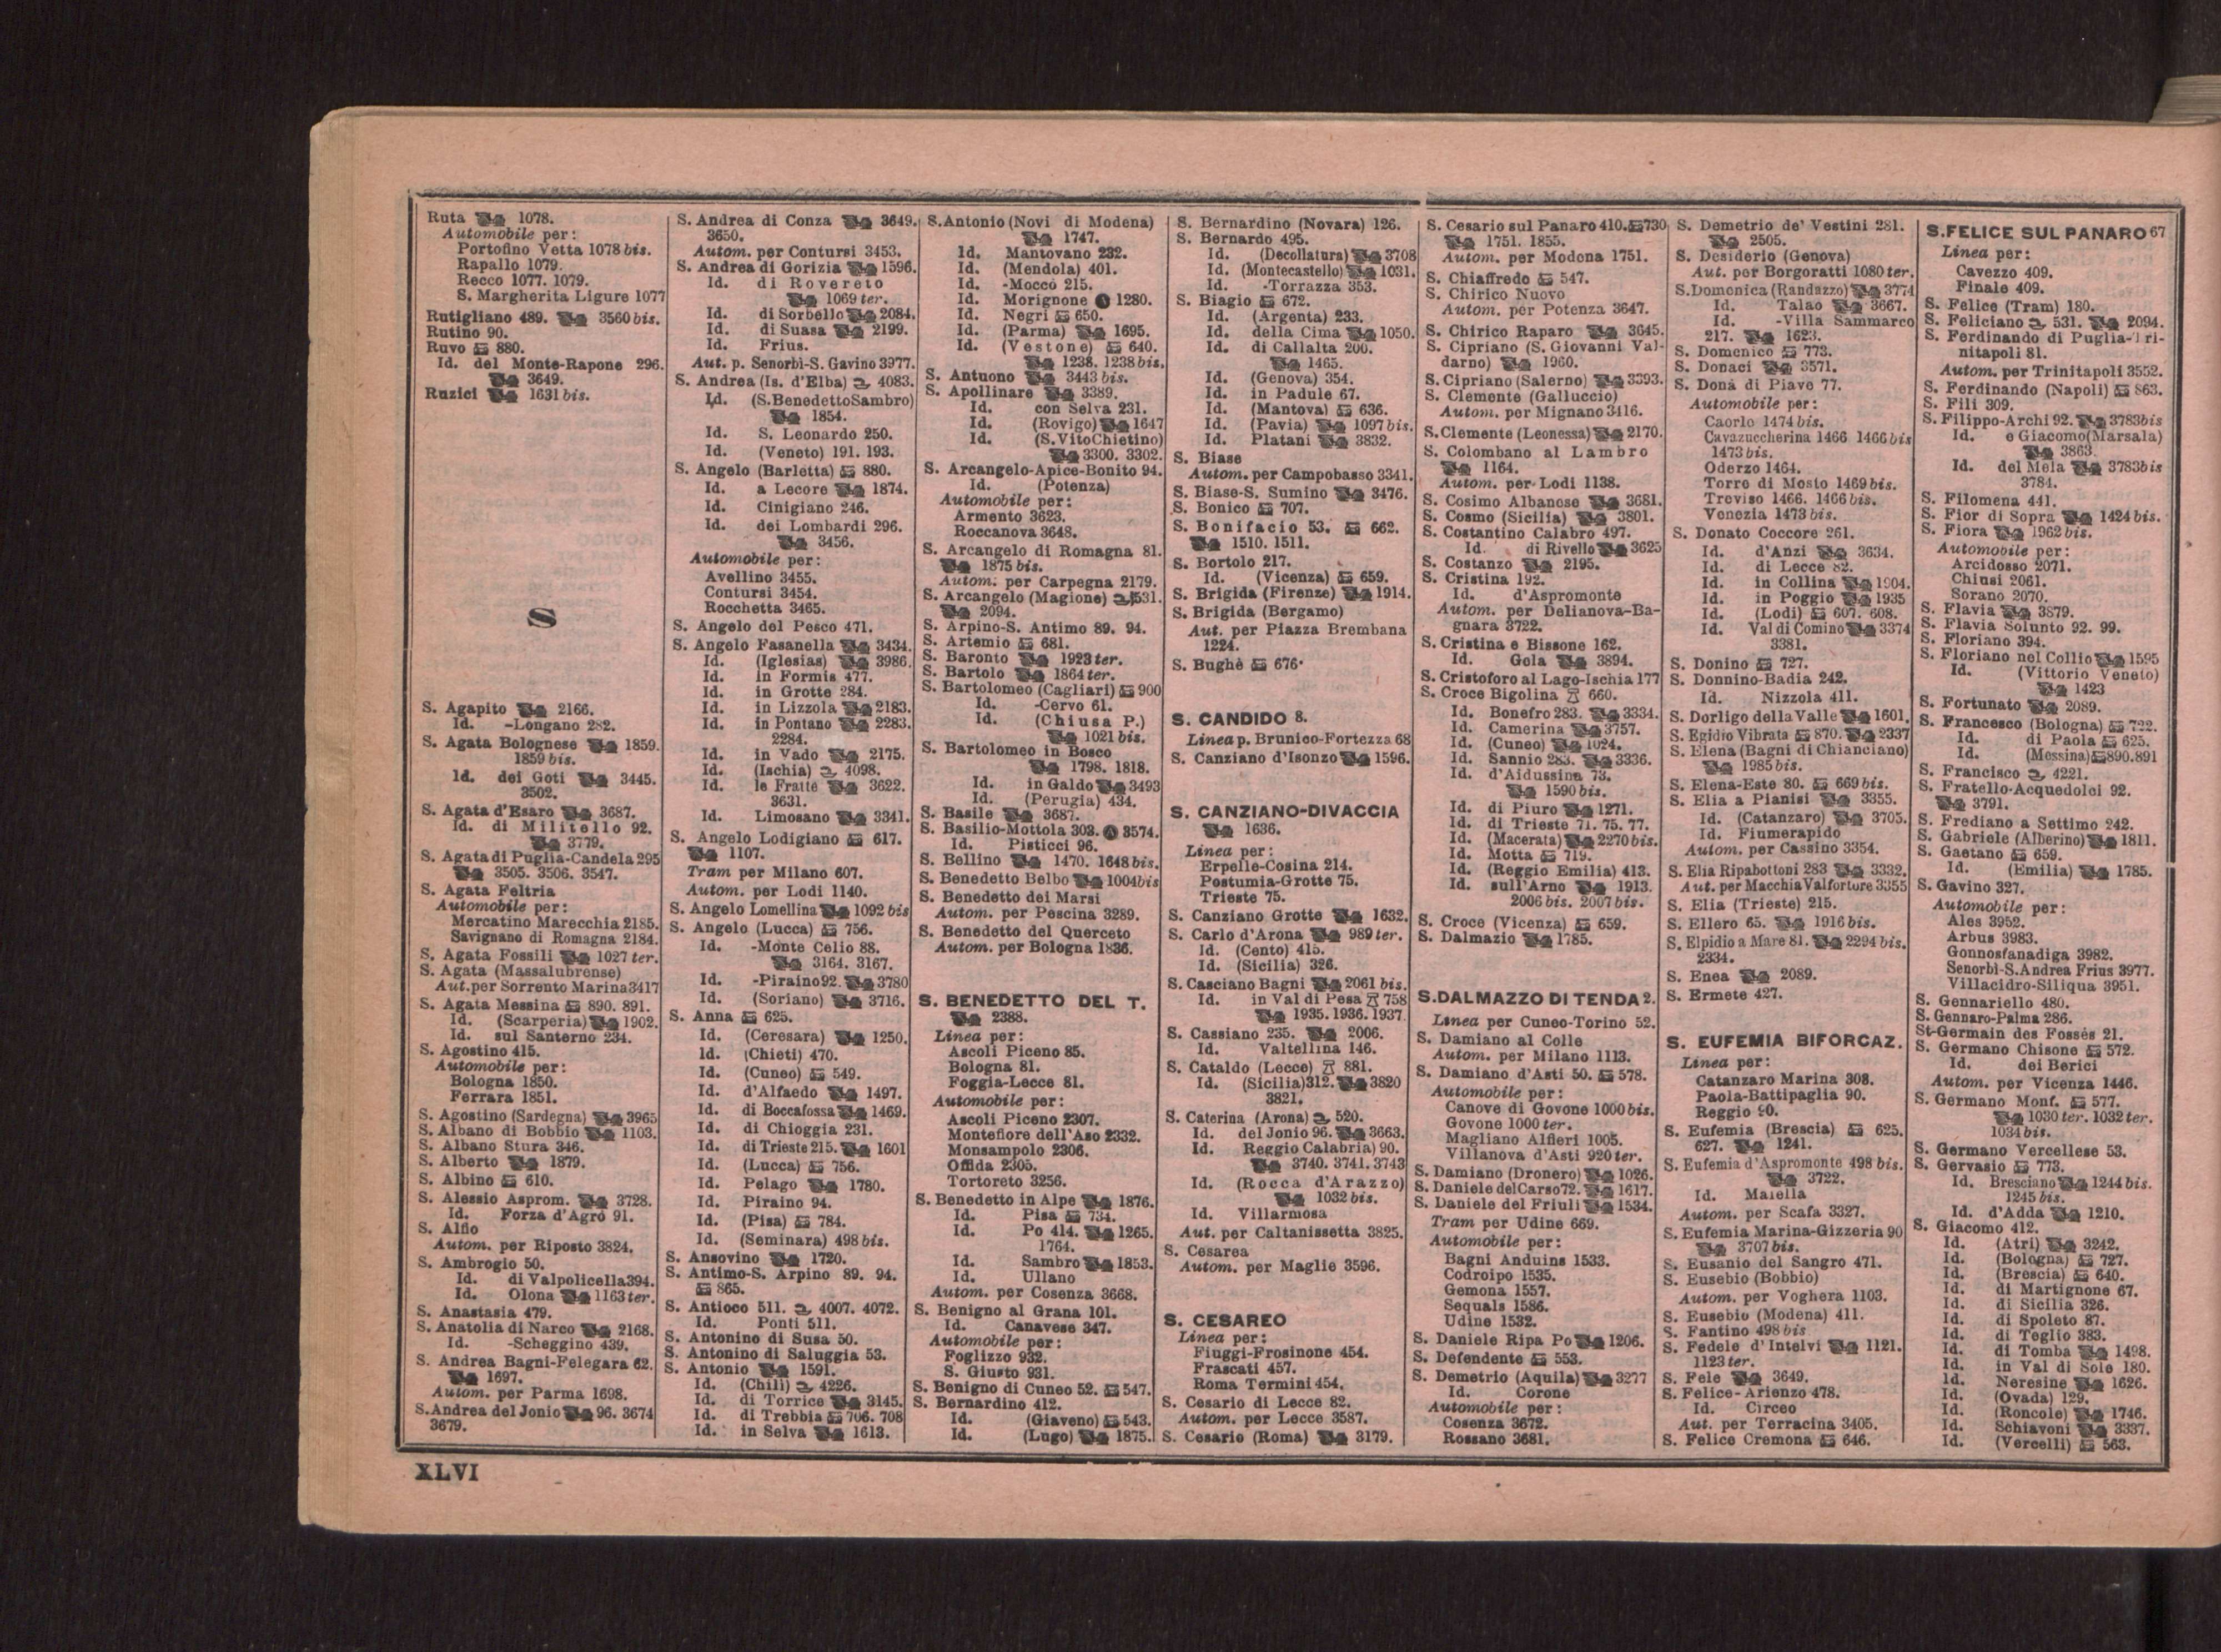 Ruta 1078.
Automobile per:
Portofino Vetta 1078 bis.
Rapallo 1079.
Recco 1077. 1079.
S. Margherita Ligure 1077
Rutigliano 489. 3560 bis.
Rutino 90.
Ruvo 880.
Id. del Monte-Rapone 296.
3649.
Ruzici 1631 bis.
S
S. Agapito 2166.
Id. -Longano 282.
S. Agata Bolognese 1859.
1859 bis.
Id. dei Goti 3445.
3502.
S. Agata d'Esaro 3687.
Id. di Militello 92.
3779.
S. Agata di Puglia-Candela 295
3505. 3506. 3547.
S. Agata Feltria
Automobile per:
Mercatino Marecchia 2185.
Savignano di Romagna 2184.
S. Agata Fossili 1027 ter.
S. Agata (Massalubrense)
Aut. per Sorrento Marina 3417
S. Agata Messina 890. 891.
Id. (Scarperia) 1902.
Id. sul Santerno 234.
S. Agostino 415.
Automobile per:
Bologna 1850.
Ferrara 1851.
S. Agostino (Sardegna) 3965
S. Albano di Bobbio 1103.
S. Albano Stura 346.
S. Alberto 1879.
S. Albino 610.
S. Alessio Asprom. 3728.
Id. Forza d'Agrò 91.
S. Alfio
Autom. per Riposto 3824.
S. Ambrogio 50.
Id. di Valpolicella 394.
Id. Olona 1163 ter.
S. Anastasia 479.
S. Anatolia di Narco 2168.
Id. -Scheggino 439.
S. Andrea Bagni-Felegara 62.
1697.
Autom. per Parma 1698.
S. Andrea del Jonio 96. 3674
3679.
S. Andrea di Conza 3649.
3650.
Autom. per Contursi 3453.
S. Andrea di Gorizia 1596.
Id. di Rovereto
1069 ter.
Id. di Sorbello 2084.
Id. di Suasa 2199.
Id. Frius.
Aut. p. Senorbì-S. Gavino 3977.
S. Andrea (Is. d'Elba) 4083.
Id. (S. Benedetto Sambro)
1854.
Id. S. Leonardo 250.
Id. (Veneto) 191. 193.
S. Angelo (Barletta) 880.
Id. a Lecore 1874.
Id. Cinigiano 246.
Id. dei Lombardi 296.
3456.
Automobile per:
Avellino 3455.
Contursi 3454.
Rocchetta 3465.
S. Angelo del Pesco 471.
S. Angelo Fasanella 3434.
Id. (Iglesias) 3986.
Id. in Formis 477.
Id. in Grotte 284.
Id. in Lizzola 2183.
Id. in Pontano 2283.
2284.
Id. in Vado 2175.
Id. (Ischia) 4098.
Id. le Fratte 3622.
3631.
Id. Limosano 3341.
S. Angelo Lodigiano 617.
1107.
Tram per Milano 607.
Autom. per Lodi 1140.
S. Angelo Lomellina 1092 bis
S. Angelo (Lucca) 756.
Id. -Monte Celio 88.
3164. 3167.
Id. -Piraino 92. 3780
Id. (Soriano) 3716.
S. Anna 625.
Id. (Ceresara) 1250.
Id. (Chieti) 470.
Id. (Cuneo) 549.
Id. d'Alfaedo 1497.
Id. di Boccafossa 1469.
Id. di Chioggia 231.
Id. di Trieste 215. 1601
Id. (Lucca) 756.
Id. Pelago 1780.
Id. Piraino 94.
Id. (Pisa) 784.
Id. (Seminara) 498 bis.
S. Ansovino 1720.
S. Antimo-S. Arpino 89. 94.
865.
S. Antioco 511. 4007. 4072.
Id. Ponti 511.
S. Antonino di Susa 50.
S. Antonino di Saluggia 53.
S. Antonio 1591.
Id. (Chili) 4226.
Id. di Torrice 3145.
Id. di Trebbia 706. 708
Id. in Selva 1613.
S. Antonio (Novi di Modena)
1747.
Id. Mantovano 232.
Id. (Mendola) 401.
Id. -Mocco 215.
Id. Morignone 1280.
Id. Negri 650.
Id. (Parma) 1695.
Id. (Vestone) 640.
1238. 1238 bis.
S. Antuono 3443 bis.
S. Apollinare 3389.
Id. con Selva 231.
Id. (Rovigo) 1647
Id. (S. Vito Chietino)
3300. 3302.
S. Arcangelo-Apice-Bonito 94.
Id. (Potenza)
Automobile per:
Armento 3623.
Roccanova 3648.
S. Arcangelo di Romagna 81.
1875 bis.
Autom. per Carpegna 2179.
S. Arcangelo (Magione) 531.
2094.
S. Arpino-S. Antimo 89. 94.
S. Artemio 681.
S. Baronto 1923 ter.
S. Bartolo 1864 ter.
S. Bartolomeo (Cagliari) 900
Id. -Cervo 61.
Id. (Chiusa P.)
1021 bis.
S. Bartolomeo in Bosco
1798. 1818.
Id. in Galdo 3493
Id. (Perugia) 434.
S. Basile 3687.
S. Basilio-Mottola 303. 3574.
Id. Pisticci 96.
S. Bellino 1470. 1648 bis.
S. Benedetto Belbo 1004 bis
S. Benedetto dei Marsi
Autom. per Pescina 3289.
S. Benedetto del Querceto
Autom. per Bologna 1836.
S. BENEDETTO DEL T.
2388.
Linea per:
Ascoli Piceno 85.
Bologna 81.
Foggia-Lecce 81.
Automobile per:
Ascoli Piceno 2307.
Montefiore dell'Aso 2332.
Monsampolo 2306.
Offida 2305.
Tortoreto 3256.
S. Benedetto in Alpe 1876.
Id. Pisa 734.
Id. Po 414. 1265.
1764.
Id. Sambro 1853.
Id. Ullano
Autom. per Cosenza 3668.
S. Benigno al Grana 101.
Id. Canavese 347.
Automobile per:
Foglizzo 932.
S. Giusto 931.
S. Benigno di Cuneo 52. 547.
S. Bernardino 412.
Id. (Giaveno) 543.
Id. (Lugo) 1875.
S. Bernardino (Novara) 126.
S. Bernardo 495.
Id. (Decollatura) 3708
Id. (Montecastello) 1031.
Id. -Torrazza 353.
S. Biagio 672.
Id. (Argenta) 233.
Id. della Cima 1050.
Id. di Callalta 200.
1465.
Id. (Genova) 354.
Id. in Padule 67.
Id. (Mantova) 636.
Id. (Pavia) 1097 bis.
Id. Platani 3832.
S. Biase
Autom. per Campobasso 3341.
S. Biase-S. Sumino 3476.
S. Bonico 707.
S. Bonifacio 53. 662.
1510. 1511.
S. Bortolo 217.
Id. (Vicenza) 659.
S. Brigida (Firenze) 1914.
S. Brigida (Bergamo)
Aut. per Piazza Brembana
1224.
S. Bughè 676.
S. CANDIDO 8.
Linea p. Brunico-Fortezza 68
S. Canziano d'Isonzo 1596.
S. CANZIANO-DIVACCIA
1636.
Linea per:
Erpelle-Cosina 214.
Postumia-Grotte 75.
Trieste 75.
S. Canziano Grotte 1632.
S. Carlo d'Arona 989 ter.
Id. (Cento) 415.
Id. (Sicilia) 326.
S. Casciano Bagni 2061 bis.
Id. in Val di Pesa 758
1935. 1936. 1937.
S. Cassiano 235. 2006.
Id. Valtellina 146.
S. Cataldo (Lecce) 881.
Id. (Sicilia) 312. 3820
3821.
S. Caterina (Arona) 520.
Id. del Jonio 96. 3663.
Id. Reggio Calabria) 90.
3740. 3741. 3743
Id. (Rocca d'Arazzo)
1032 bis.
Id. Villarmosa
Aut. per Caltanissetta 3825.
S. Cesarea
Autom. per Maglie 3596.
S. CESAREO
Linea per:
Fiuggi-Frosinone 454.
Frascati 457.
Roma Termini 454.
S. Cesario di Lecce 82.
Autom. per Lecce 3587.
S. Cesario (Roma) 3179.
S. Cesario sul Panaro 410. 730
1751. 1855.
Autom. per Modena 1751.
S. Chiaffredo 547.
S. Chirico Nuovo
Autom. per Potenza 3647.
S. Chirico Raparo 3645.
S. Cipriano (S. Giovanni Val-
darno) 1960.
S. Cipriano (Salerno) 3393.
S. Clemente (Galluccio)
Autom. per Mignano 3416.
S. Clemente (Leonessa) 2170.
S. Colombano al Lambro
1164.
Autom. per Lodi 1138.
S. Cosimo Albanese 3681.
S. Cosmo (Sicilia) 3801.
S. Costantino Calabro 497.
Id. di Rivello 3625
S. Costanzo 2195.
S. Cristina 192.
Id. d'Aspromonte
Autom. per Delianova-Ba-
gnara 3722.
S. Cristina e Bissone 162.
Id. Gela 3894.
S. Cristoforo al Lago-Ischia 177
S. Croce Bigolina 660.
Id. Bonefro 283. 3334.
Id. Camerina 3757.
Id. (Cuneo) 1024.
Id. Sannio 283. 3336.
Id. d'Aidussina 73.
1590 bis.
Id. di Piuro 1271.
Id. di Trieste 71. 75. 77.
Id. (Macerata) 2270 bis.
Id. Motta 719.
Id. (Reggio Emilia) 413.
Id. sull'Arno 1913.
2006 bis. 2007 bis.
S. Croce (Vicenza) 659.
S. Dalmazio 1785.
S. DALMAZZO DI TENDA 2.
Linea per Cuneo-Torino 52.
S. Damiano al Colle
Autom. per Milano 1113.
S. Damiano d'Asti 50. 578.
Automobile per:
Canove di Govone 1000 bis.
Govone 1000 ter.
Magliano Alfieri 1005.
Villanova d'Asti 920 ter.
S. Damiano (Dronero) 1026.
S. Daniele del Carso 72. 1617.
S. Daniele del Friuli 1534.
Tram per Udine 669.
Automobile per:
Bagni Anduins 1533.
Codroipo 1535.
Gemona 1557.
Sequals 1586.
Udine 1532.
S. Daniele Ripa Po 1206.
S. Defendente 553.
S. Demetrio (Aquila) 3277
Id. Corone
Automobile per:
Cosenza 3672.
Rossano 3681.
S. Demetrio de' Vestini 281.
2505.
S. Desiderio (Genova)
Aut. per Borgoratti 1080 ter.
S. Domenica (Randazzo) 3774
Id. Talao 3667.
Id. -Villa Sammarco
217. 1623.
S. Domenico 773.
S. Donaci 3571.
S. Donà di Piave 77.
Automobile per:
Caorlo 1474 bis.
Cavazuccherina 1466 1466 bis
1473 bis.
Oderzo 1464.
Torre di Mosto 1469 bis.
Treviso 1466. 1466 bis.
Venezia 1473 bis.
S. Donato Coccore 261.
Id. d'Anzi 3634.
Id. di Lecce 82.
Id. in Collina 1904.
Id. in Poggio 1935
Id. (Lodi) 607. 608.
Id. Val di Comino 3374
3381.
S. Donino 727.
S. Donnino-Badia 242.
Id. Nizzola 411.
S. Dorligo della Valle 1601.
S. Egidio Vibrata 870. 2337
S. Elena (Bagni di Chianciano)
1985 bis.
S. Elena-Este 80. 669 bis.
S. Elia a Pianisi 3355.
Id. (Catanzaro) 3705.
Id. Fiumerapido
Autom. per Cassino 3354.
S. Elia Ripabottoni 283 3332.
Aut. per Macchia Valfortore 3355
S. Elia (Trieste) 215.
S. Ellero 65. 1916 bis.
S. Elpidio a Mare 81. 2294 bis.
2334.
S. Enea 2089.
S. Ermete 427.
S. EUFEMIA BIFORCAZ.
Linea per:
Catanzaro Marina 308.
Paola-Battipaglia 90.
Reggio 90.
S. Eufemia (Brescia) 625.
627. 1241.
S. Eufemia d'Aspromonte 498 bis.
3722.
Id. Maiella
Autom. per Scafa 3327.
S. Eufemia Marina-Gizzeria 90
3707 bis.
S. Eusanio del Sangro 471.
S. Eusebio (Bobbio)
Autom. per Voghera 1103.
S. Eusebio (Modena) 411.
S. Fantino 498 bis
S. Fedele d'Intelvi 1121.
1123 ter.
S. Fele 3649.
S. Felice-Arienzo 478.
Id. Circeo
Aut. per Terracina 3405.
S. Felice Cremona 646.
S. FELICE SUL PANARO 67
Linea per:
Cavezzo 409.
Finale 409.
S. Felice (Tram) 180.
S. Feliciano 531. 2094.
S. Ferdinando di Puglia-Tri-
nitapoli 81.
Autom. per Trinitapoli 3552.
S. Ferdinando (Napoli) 863.
S. Fili 309.
S. Filippo-Archi 92. 3783 bis
Id. e Giacomo (Marsala)
3863.
Id. del Mela 3783 bis
3784.
S. Filomena 441.
S. Fior di Sopra 1424 bis.
S. Fiora 1962 bis.
Automobile per:
Arcidosso 2071.
Chiusi 2061.
Sorano 2070.
S. Flavia 3879.
S. Flavia Solunto 92. 99.
S. Floriano 394.
S. Floriano nel Collio 1595
Id. (Vittorio Veneto)
1423
S. Fortunato 2089.
S. Francesco (Bologna) 722.
Id. di Paola 625.
Id. (Messina) 890. 891
S. Francisco 4221.
S. Fratello-Acquedolci 92.
3791.
S. Frediano a Settimo 242.
S. Gabriele (Alberino) 1811.
S. Gaetano 659.
Id. (Emilia) 1785.
S. Gavino 327.
Automobile per:
Ales 3952.
Arbus 3983.
Gonnosfanadiga 3982.
Senorbì-S. Andrea Frius 3977.
Villacidro-Siliqua 3951.
S. Gennariello 480.
S. Gennaro-Palma 286.
St-Germain des Fossés 21.
S. Germano Chisone 572.
Id. dei Berici
Autom. per Vicenza 1446.
S. Germano Monf. 577.
1030 ter. 1032 ter.
1034 bis.
S. Germano Vercellese 53.
S. Gervasio 773.
Id. Bresciano 1244 bis.
1245 bis.
Id. d'Adda 1210.
S. Giacomo 412.
Id. (Atri) 3242.
Id. (Bologna) 727.
Id. (Brescia) 640.
Id. di Martignone 67.
Id. di Sicilia 326.
Id. di Spoleto 87.
Id. di Teglio 383.
Id. di Tomba 1498.
Id. in Val di Sole 180.
Id. Neresine 1626.
Id. (Ovada) 129.
Id. (Roncole) 1746.
Id. Schiavoni 3337.
Id. (Vercelli) 563.
XLVI